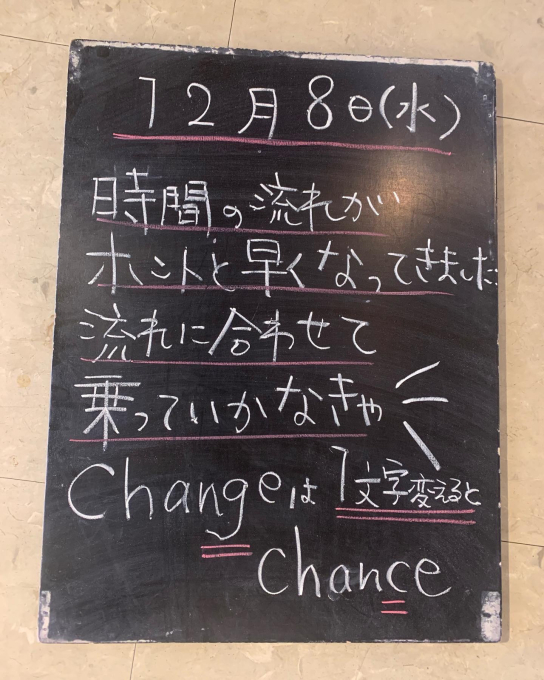 12月8日(水)
時間の流れが
ホントと早くなってきました
流れに合わせて
乗っていかなきゃ
Changeは1文字変えると
chance